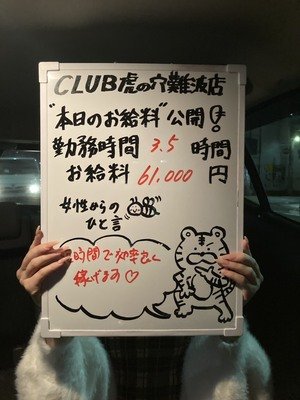 CLUB虎の穴難波店
"本日のお給料"公開!
勤務時間 3.5 時間
お給料 61,000 円
女性からの
ひと言
短時間で効率良く
稼げます♡